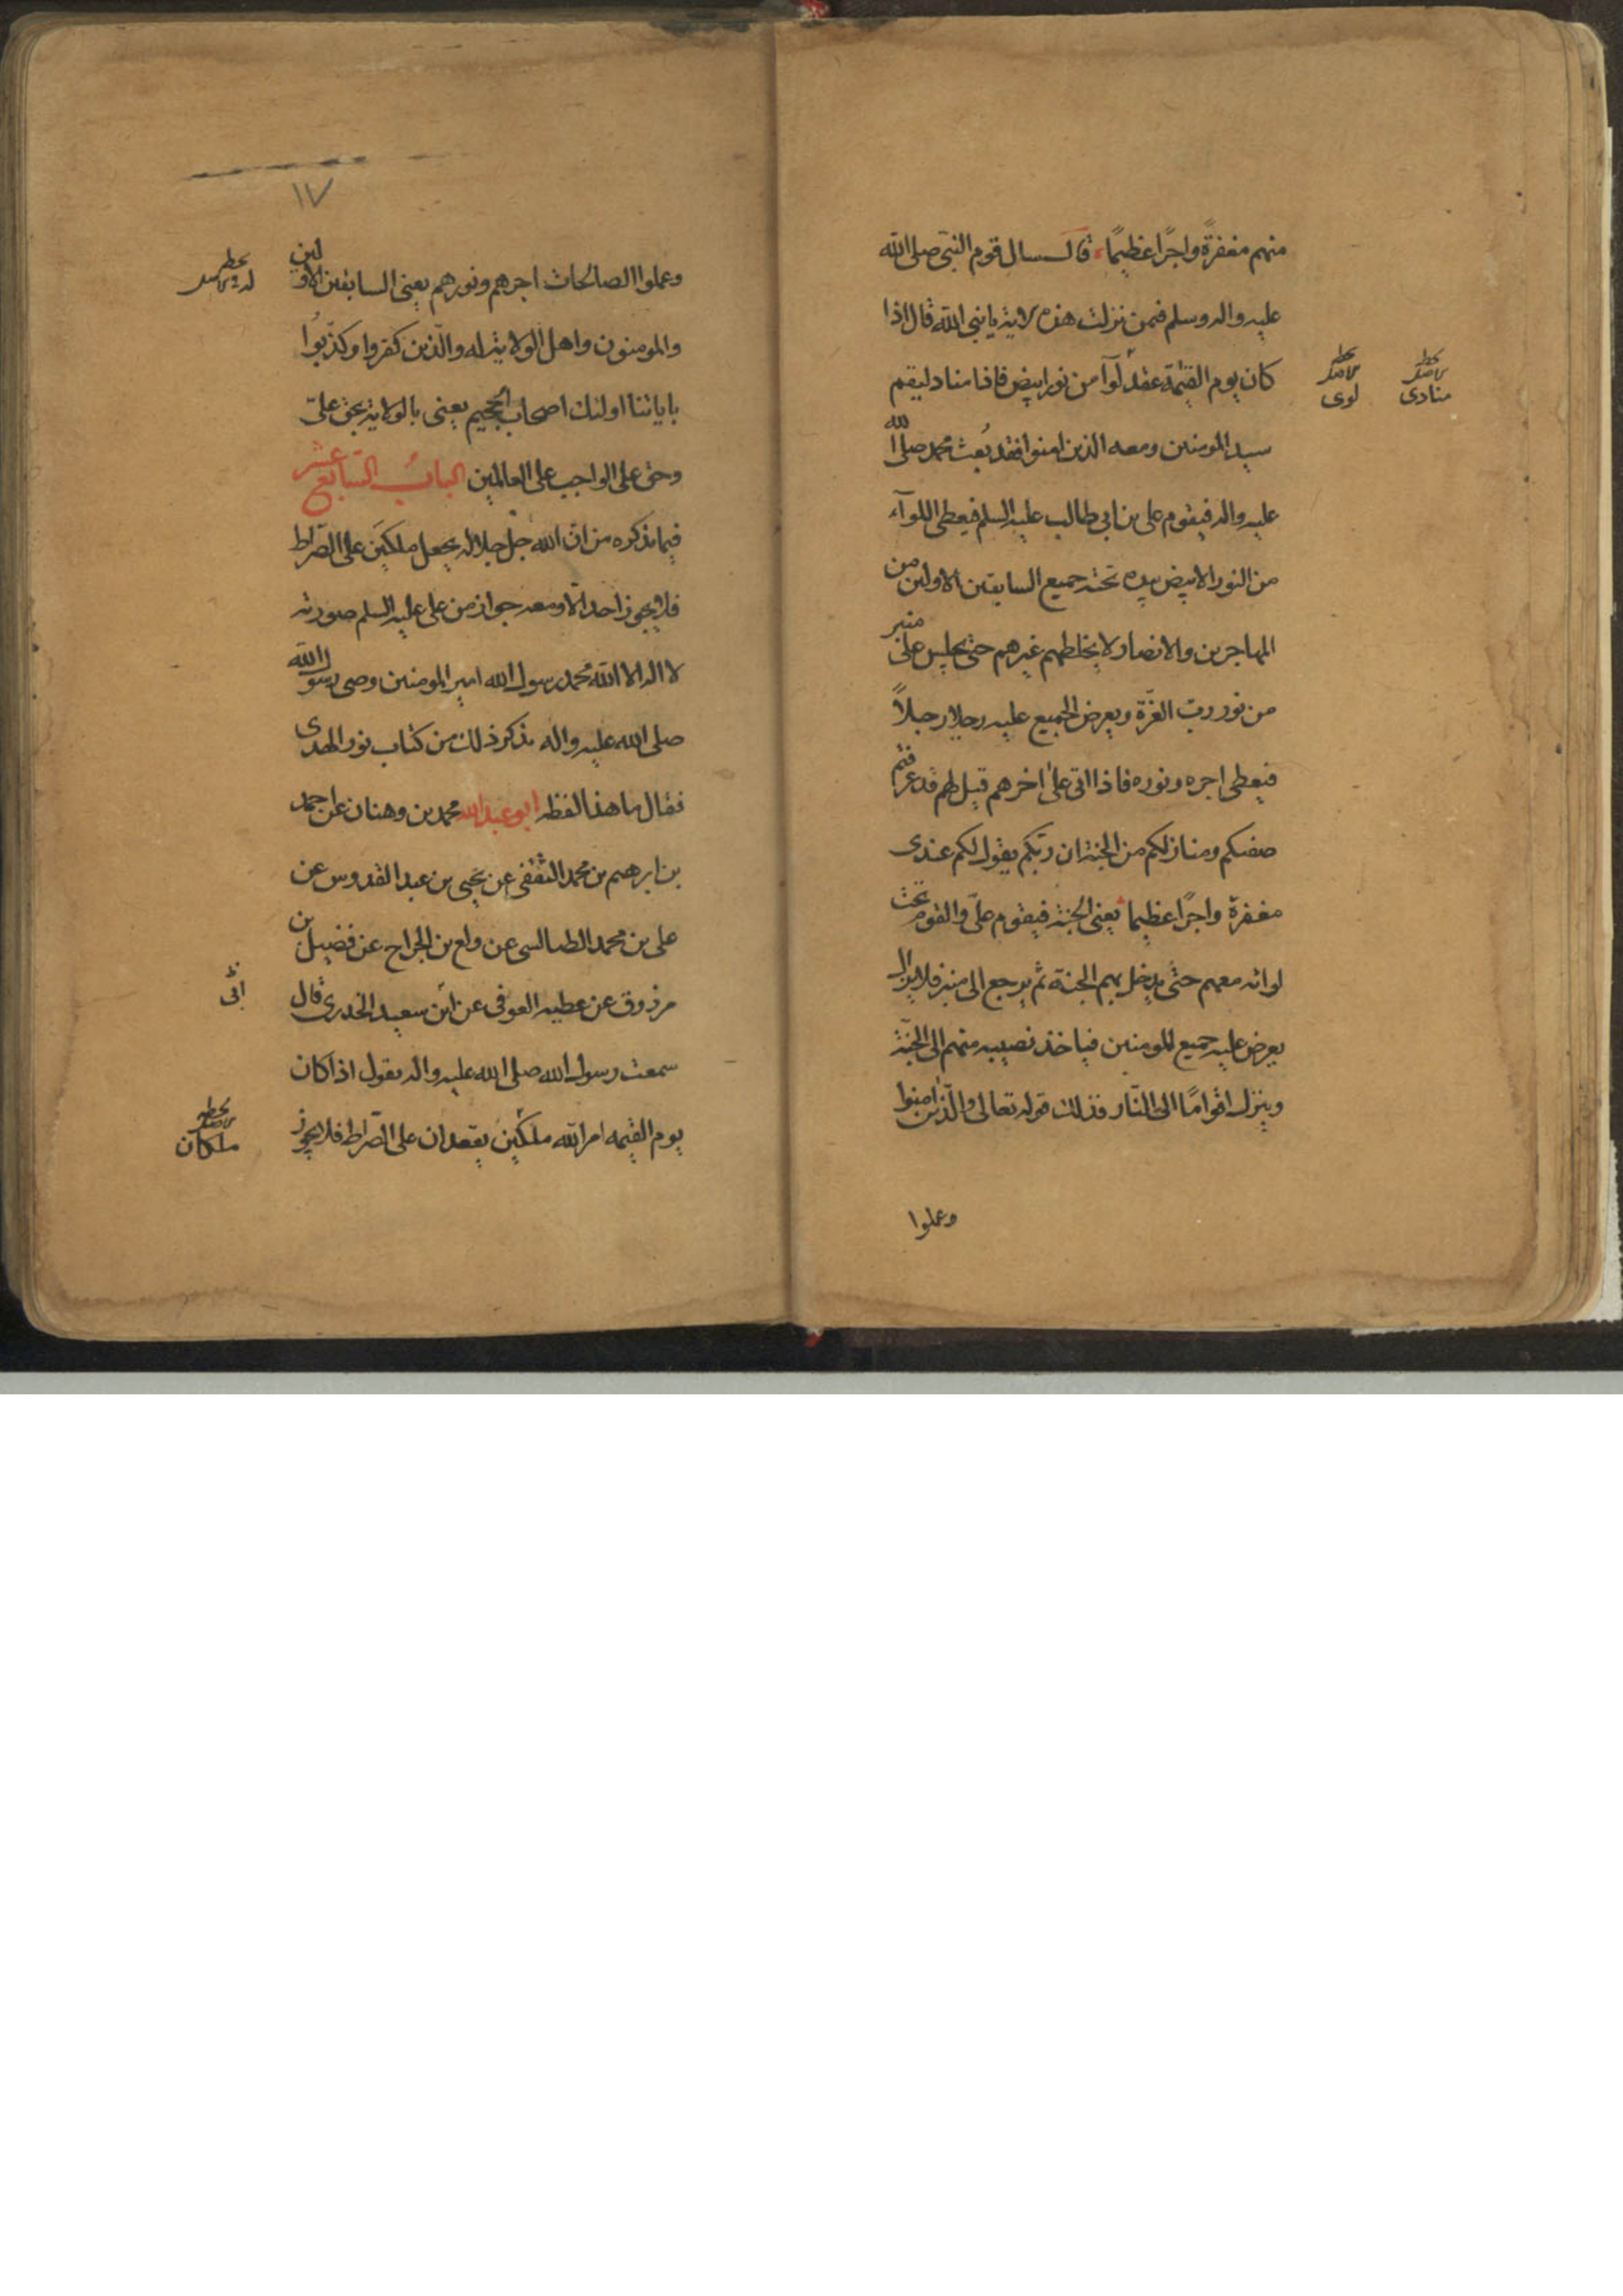 منهم مغفرة واجرًا عظيمًا قال سال قوم النبى صلى الله
عليه واله وسلم فيمن نزلت هذه الاية يا نبى الله قال اذا
كان يوم القيمة عقد لوآ من نور ابيض فاذا مناد ليقم
سيد المومنين ومعه الذين امنوا فقد بُعث محمد صلى الله
عليه واله فيقوم على بن ابى طالب عليه السلم فيعطى اللوآء
من النور الابيض بيده تحته جميع السابقين الاولين من
المهاجرين والانصار لا يخلطهم غيرهم حتى يجلس على منبر
من نور رب العزّة ويعرض الجميع عليه رجلا رجلاً
فيعطى اجره ونوره فاذا اتى على اخرهم قيل لهم قد عرفتم
صفتكم ومنازلكم من الجنة ان ربّكم يقول لكم عندى
مغفرة واجرًا عظيما يعنى الجنة فيقوم علىّ والقوم تحت
لوائه معهم حتى يدخل بهم الجنة ثم يرجع الى منبره فلا يزال
يعرض عليه جميع المومنين فياخذ نصيبه منهم الى الجنّة
وينزل اقوامًا الى النّار فذلك قوله تعالى والّذين امنوا
وعملوا
لوى
منادى
١٧
وعملوا الصالحات اجرهم ونورهم يعنى السابقين الاولين
والمومنون واهل الولاية له والّذين كفروا وكذّبوُا
باياتنا اولئك اصحاب الجحيم يعنى بالولاية بحق علىّ
وحق على الواجب على العالمين البابُ السّابع عشر
فيما نذكره من ان الله جلّ جلاله يجعل ملكَين على الصّراط
فلا يجوز احد الا ومعه جواز من على عليه السلم صورته
لا اله الا الله محمد رسول الله امير المومنين وصى رسول الله
صلى الله عليه واله نذكر ذلك من كتاب نور الهدى
فقال ما هذا لفظه ابو عبد الله محمد بن وهنان عن احمد
بن ابرهيم بن محمد الثقفى عن يحيى بن عبد القدوس عن
على بن محمد الطيالسى عن ولع بن الجراح عن فضيل بن
مرذوق عن عطيه العوفى عن ابن سعيد الخدرى قال
سمعت رسول الله صلى الله عليه واله يقول اذا كان
يوم القيمه امر الله ملكَين يقعدان على الصّراط فلا يجوز
ابى
ملكان